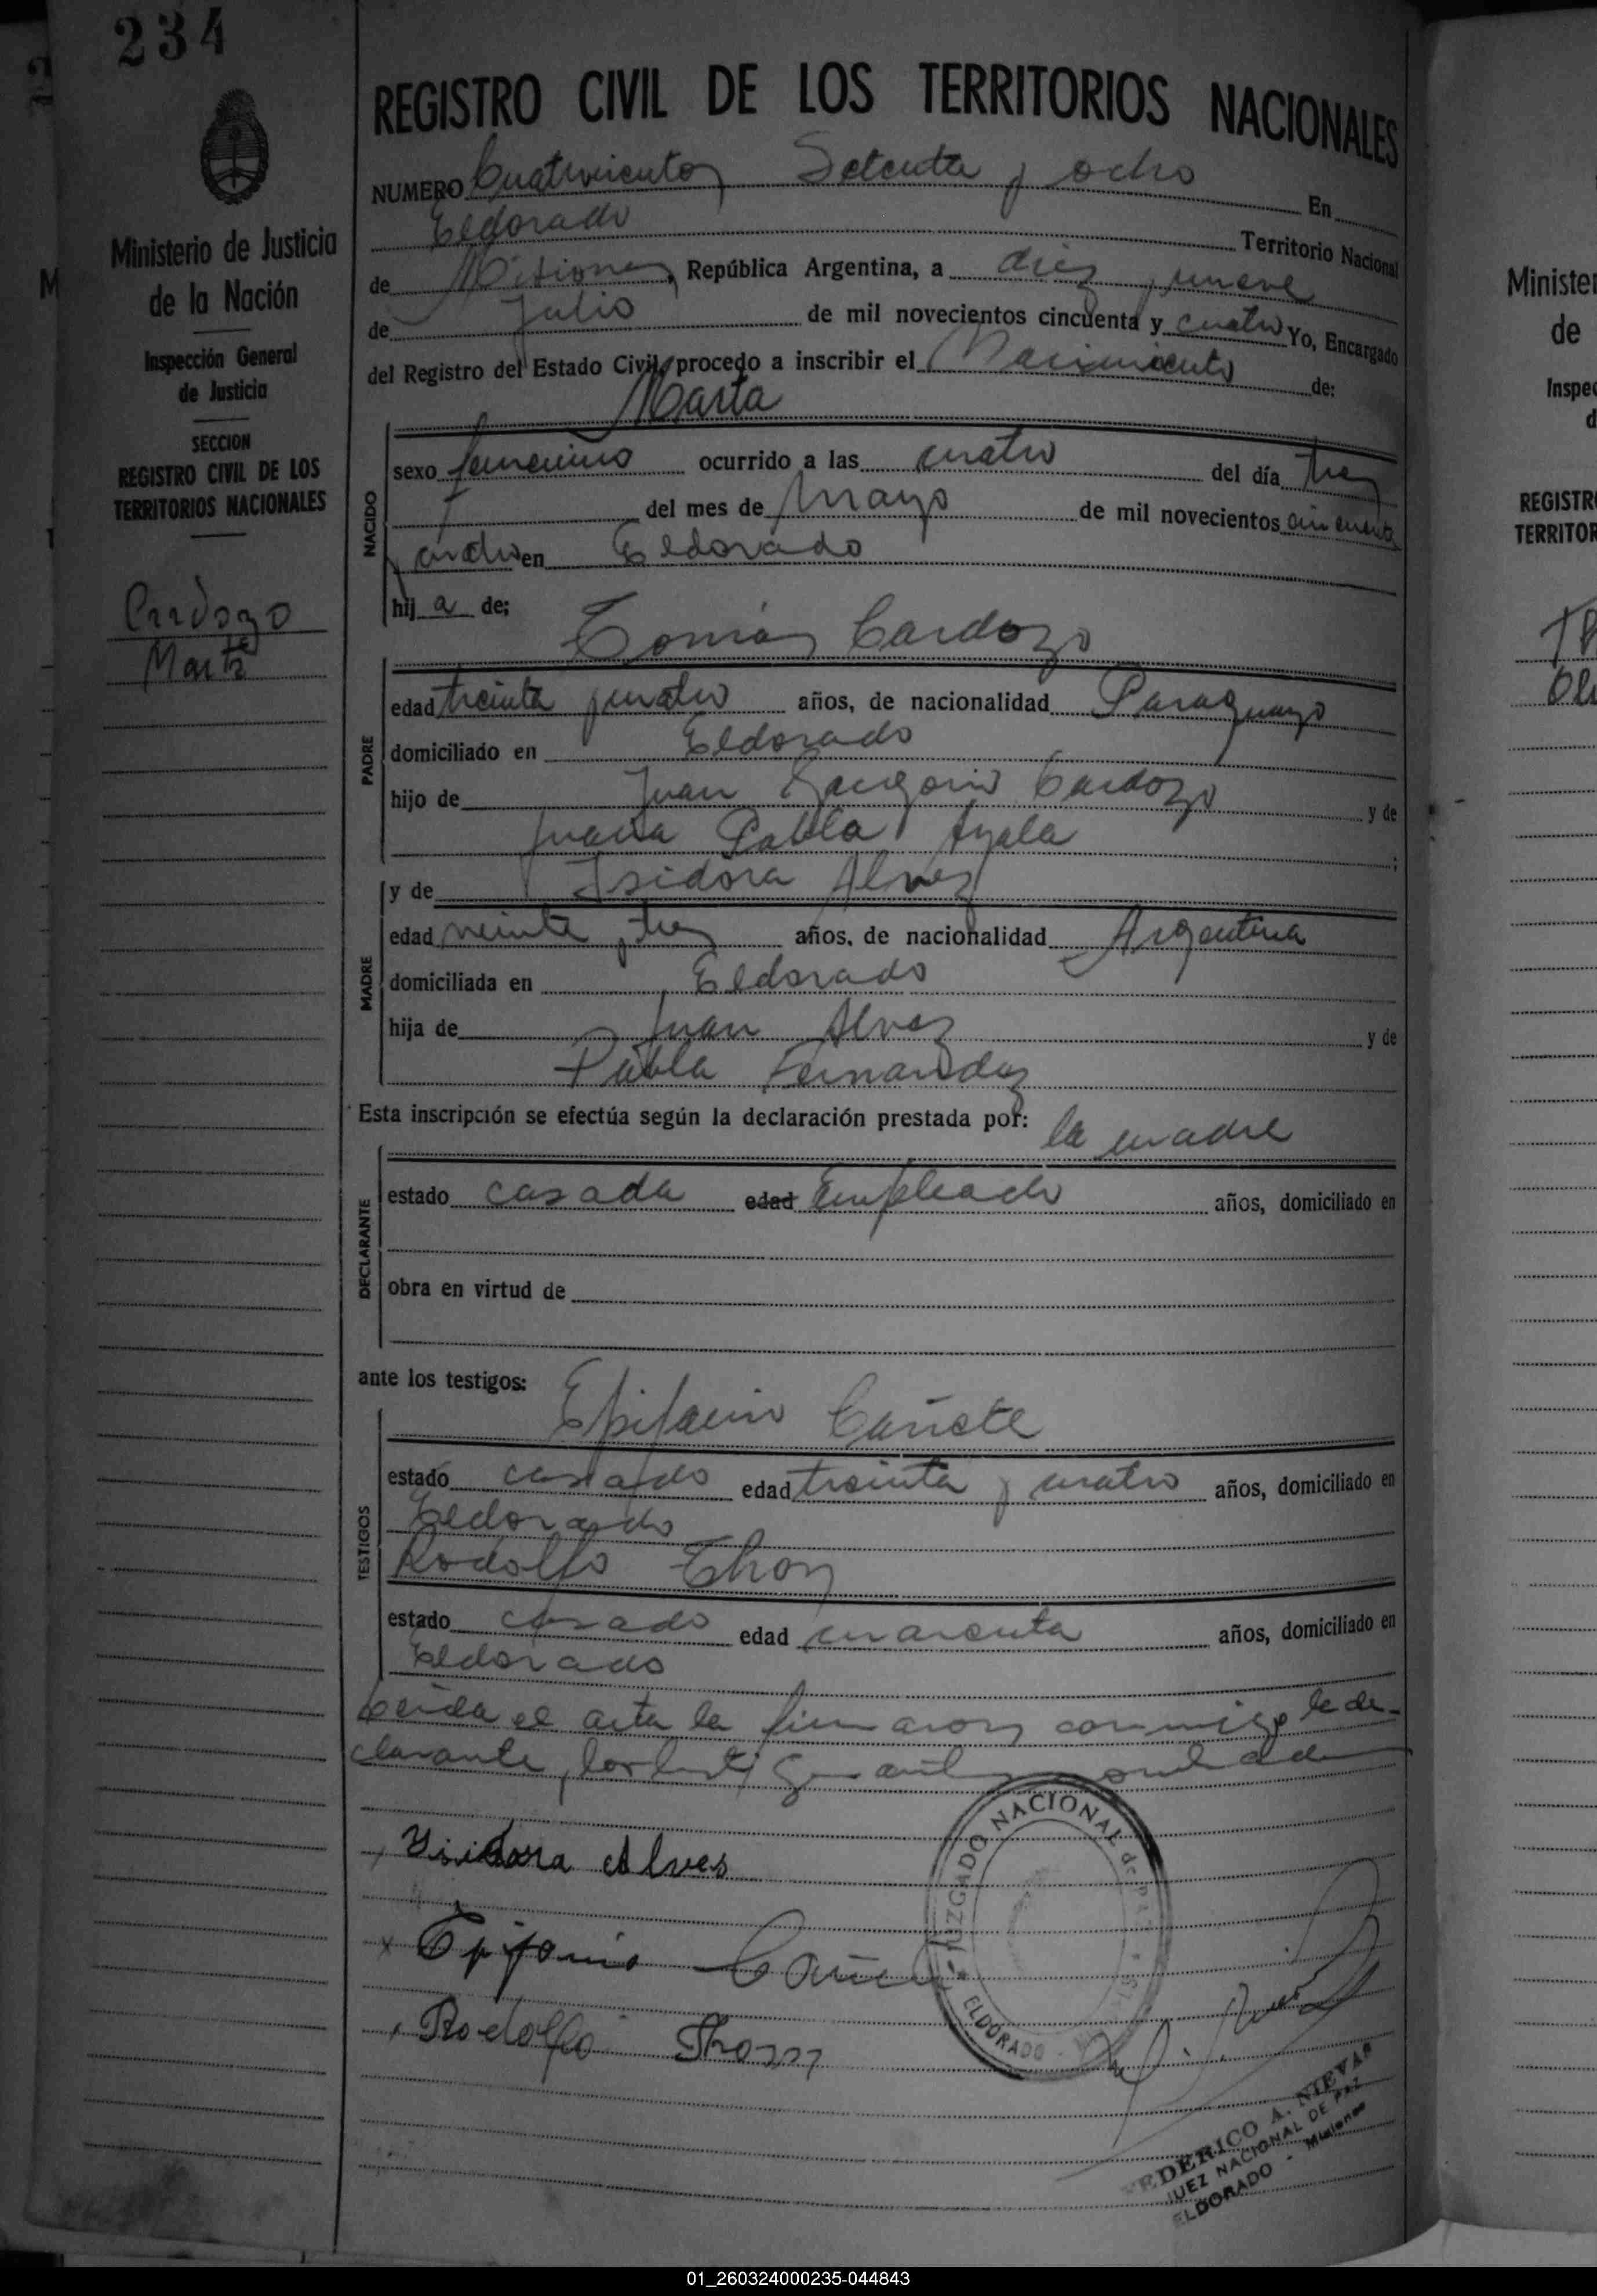 234
REGISTRO CIVIL DE LOS TERRITORIOS NACIONALES
Ministerio de Justicia
de la Nación
Inspección General
de Justicia
SECCION
REGISTRO CIVIL DE LOS
TERRITORIOS NACIONALES
Cardozo
Marta
NUMERO Cuatrocientos Setenta y ocho En
Eldorado Territorio Nacional
de Misiones, República Argentina, a diez y nueve
de Julio de mil novecientos cincuenta y cuatro Yo, Encargado
del Registro del Estado Civil, procedo a inscribir el Nacimiento de:
Marta
NACIDO
sexo femenino ocurrido a las cuatro del día tres
del mes de Mayo de mil novecientos cincuenta
y cuatro en Eldorado
hij a de;
Tomás Cardozo
PADRE
edad treinta y cuatro años, de nacionalidad Paraguayo
domiciliado en Eldorado
hijo de Juan Gregorio Cardozo y de
Juana Pabla Ayala ;
y de Isidora Alvez
MADRE
edad veinte y tres años, de nacionalidad Argentina
domiciliada en Eldorado
hija de Juan Alvez y de
Pabla Fernandez
Esta inscripción se efectúa según la declaración prestada por: la madre
DECLARANTE
estado casada edad empleado años, domiciliado en
obra en virtud de
ante los testigos:
Epifanio Cañete
TESTIGOS
estado casado edad treinta y cuatro años, domiciliado en
Eldorado
Rodolfo Thon
estado casado edad cuarenta años, domiciliado en
Eldorado
Leida el acta la firmaron conmigo la de-
clarante, los
Isidora Alves
Epifanio Cañete
Rodolfo Thonn
JUZGADO NACIONAL de
ELDORADO
FEDERICO A. NIEVAS
JUEZ NACIONAL DE PAZ
ELDORADO - Misiones
Ministe
de
Inspe
d
REGISTR
TERRITOR
01_260324000235-044843